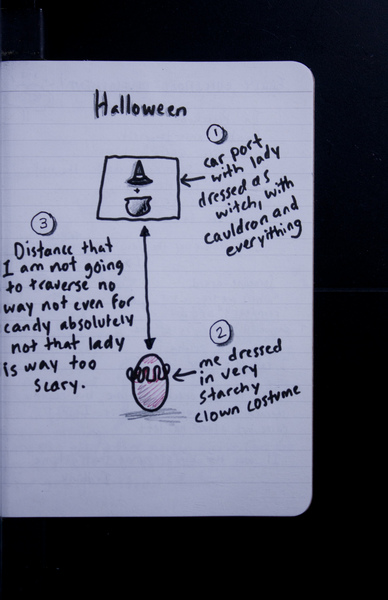 Halloween
1
car port
with lady
dressed as
witch, with
cauldron and
everyithing
3
Distance that
I am not going
to traverse no
way not even for
candy absolutely
not that lady
is way too
scary.
2
me dressed
in very
starchy
clown costume